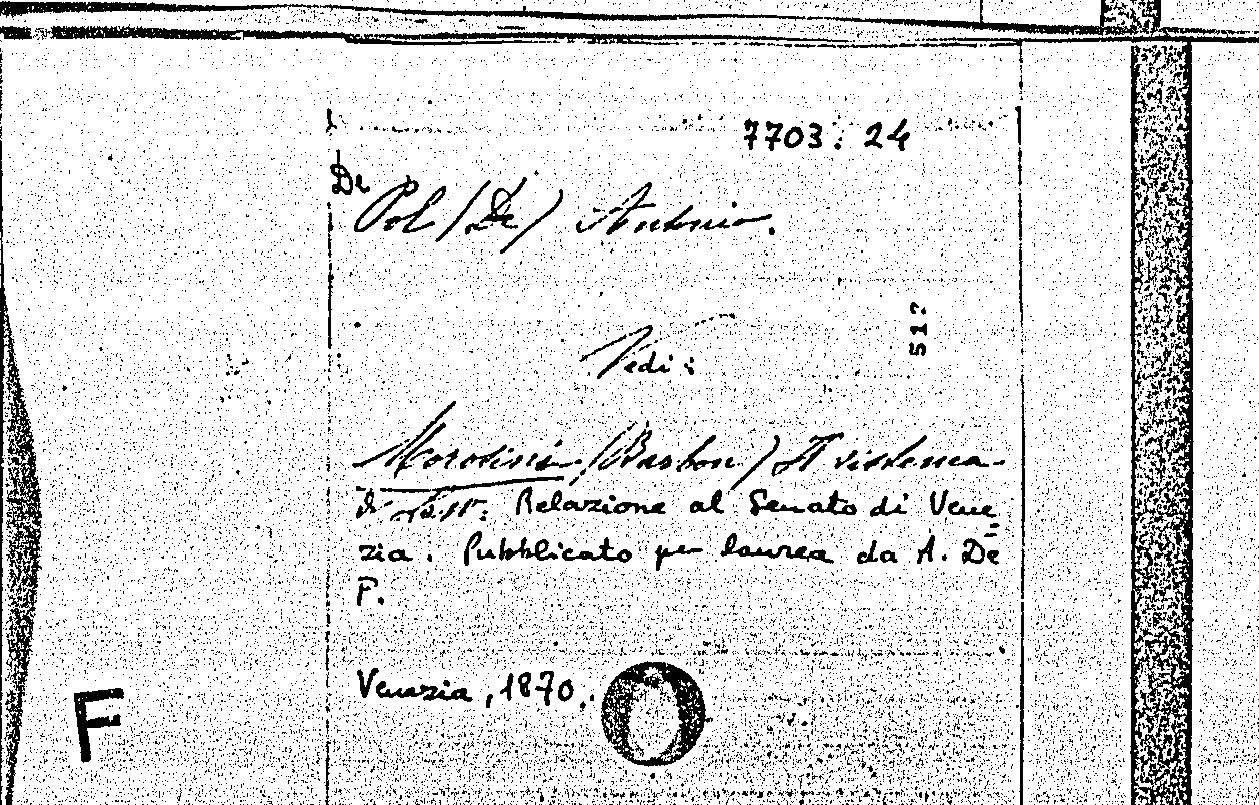 7703. 24
De
Pol (De) Antonio.
512
Vedi:
Morosini (Barbon) Il sistema
di Relazione al Senato di Vene
zia. Pubblicato per laurea da A. De
P.
Venezia, 1870.
F